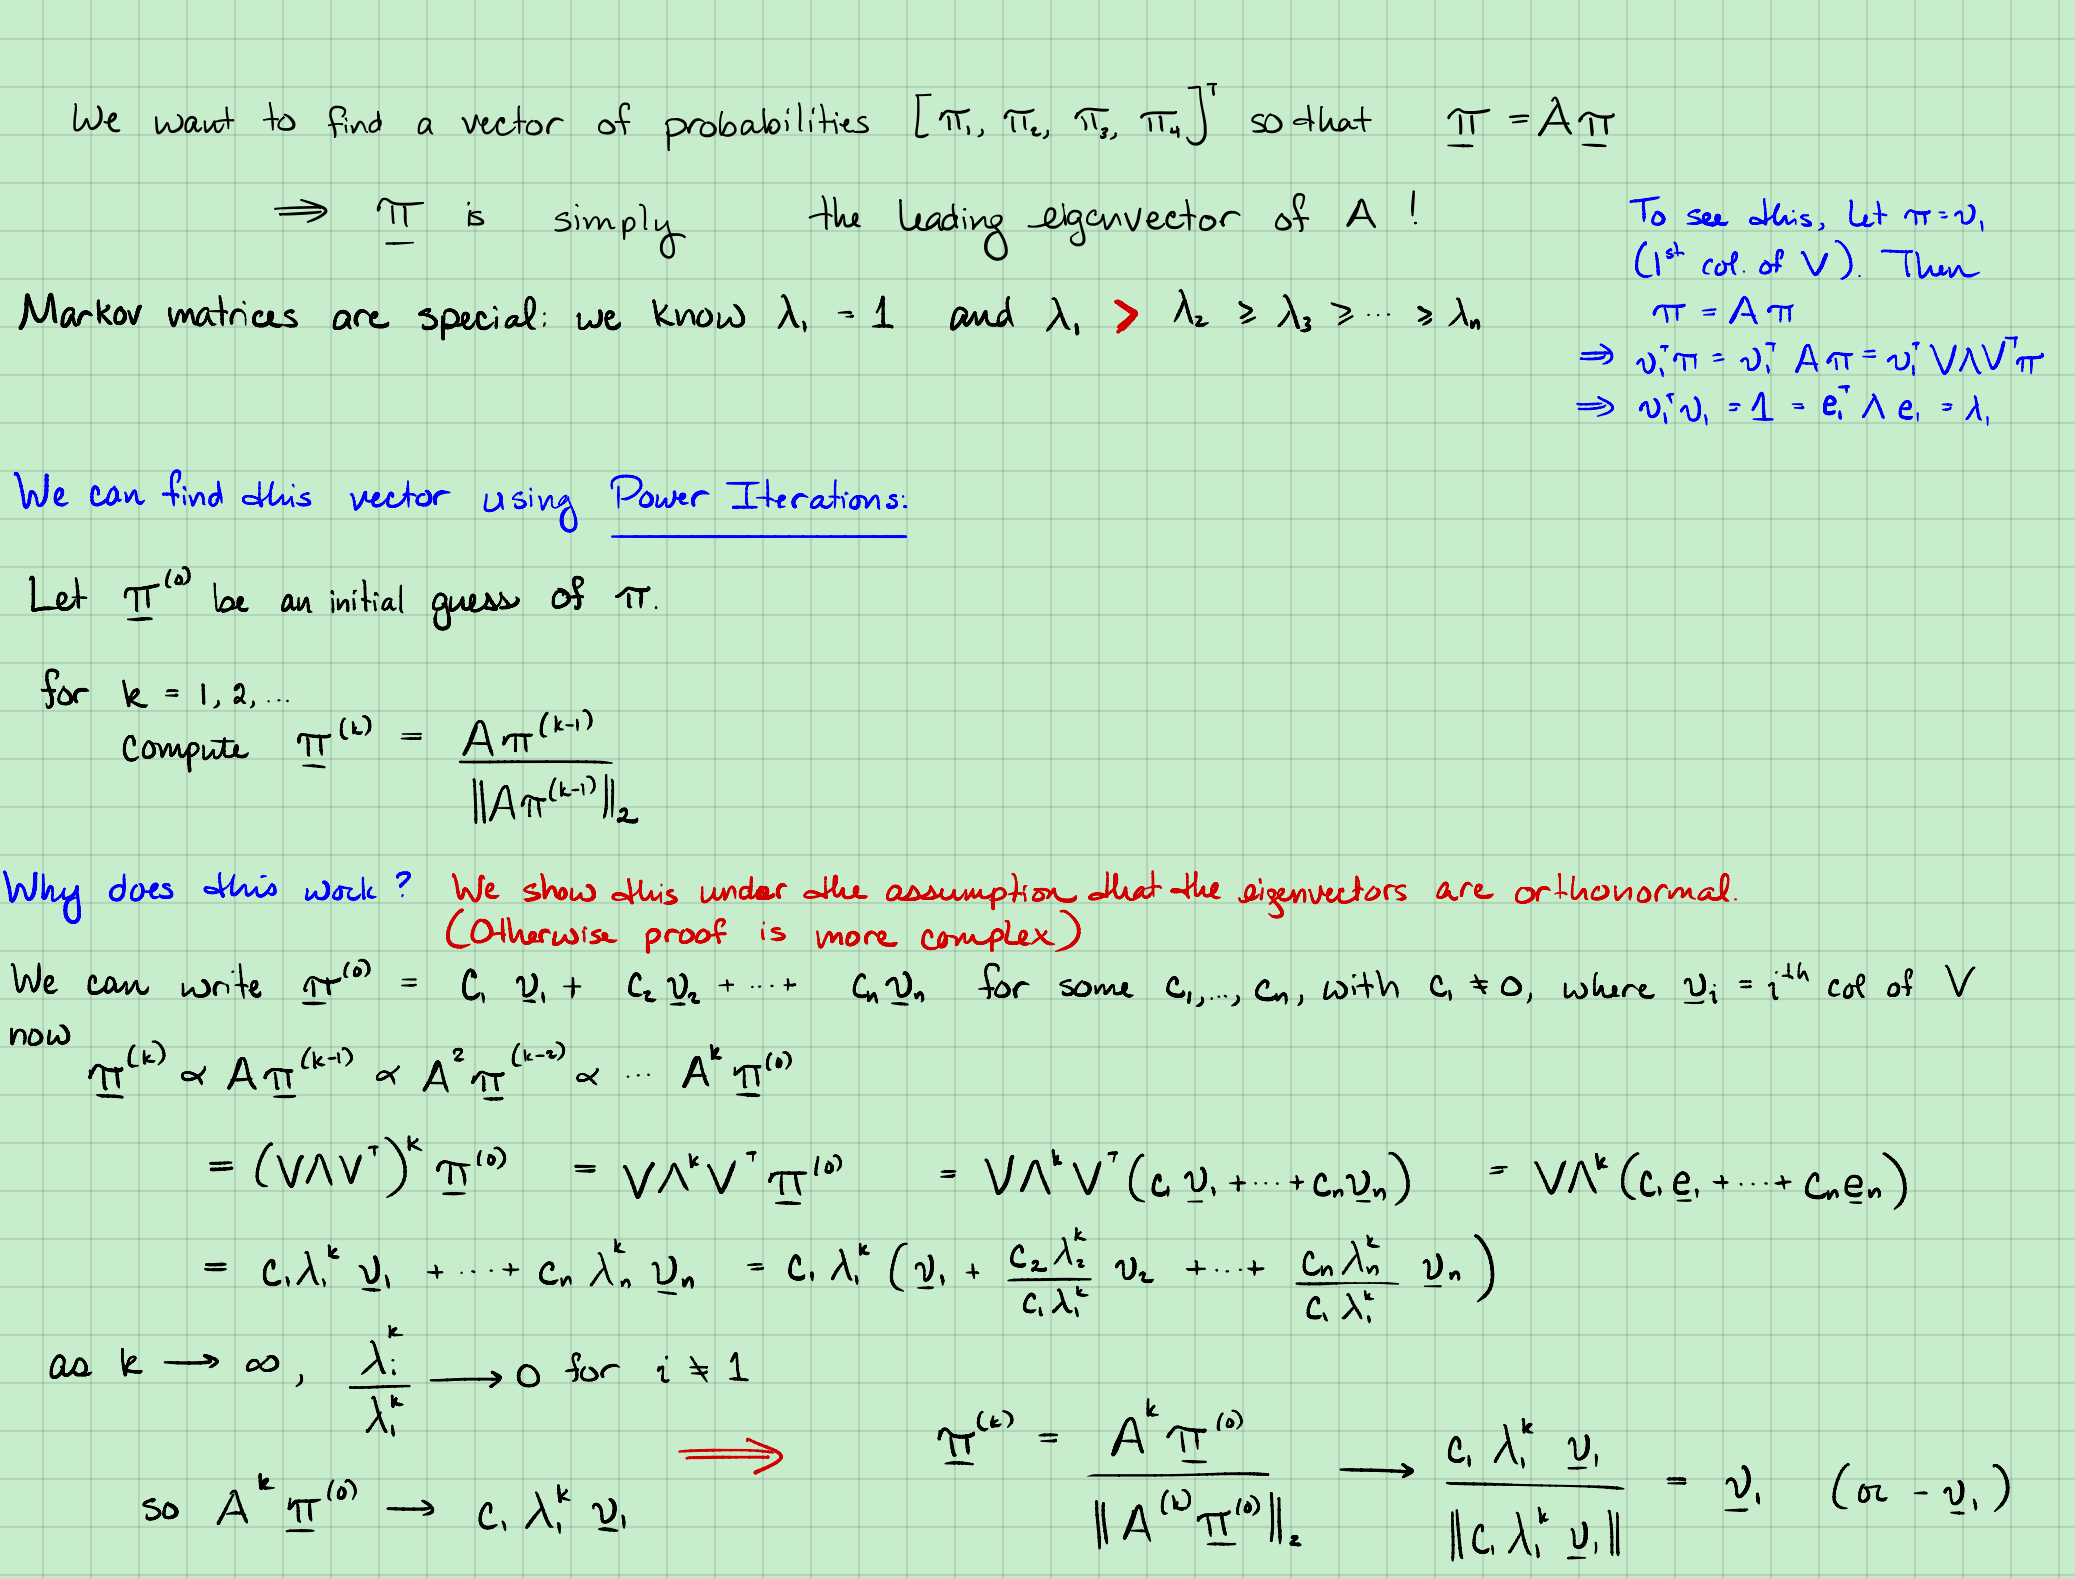 We want to find a vector of probabilities [π₁, π₂, π₃, π₄]ᵀ so that π = Aπ
⟹ π is simply the leading eigenvector of A !
To see this, let π = v₁
(1ˢᵗ col. of V). Then
π = Aπ
⟹ v₁ᵀπ = v₁ᵀ Aπ = v₁ᵀ VΛVᵀπ
⟹ v₁ᵀv₁ = 1 = e₁ᵀ Λ e₁ = λ₁
Markov matrices are special: we know λ₁ = 1 and λ₁ > λ₂ ≥ λ₃ ≥ ··· ≥ λₙ
We can find this vector using Power Iterations:
Let π⁽⁰⁾ be an initial guess of π.
for k = 1, 2, ...
compute π⁽ᵏ⁾ = Aπ⁽ᵏ⁻¹⁾ / ‖Aπ⁽ᵏ⁻¹⁾‖₂
Why does this work? We show this under the assumption that the eigenvectors are orthonormal.
(Otherwise proof is more complex)
We can write π⁽⁰⁾ = c₁ v₁ + c₂ v₂ + ··· + cₙ vₙ for some c₁, ..., cₙ, with c₁ ≠ 0, where vᵢ = iᵗʰ col of V
now
π⁽ᵏ⁾ ∝ Aπ⁽ᵏ⁻¹⁾ ∝ A²π⁽ᵏ⁻²⁾ ∝ ··· Aᵏ π⁽⁰⁾
= (VΛVᵀ)ᵏ π⁽⁰⁾ = VΛᵏVᵀ π⁽⁰⁾ = VΛᵏVᵀ(c₁ v₁ + ··· + cₙvₙ) = VΛᵏ(c₁e₁ + ··· + cₙeₙ)
= c₁λ₁ᵏ v₁ + ··· + cₙ λₙᵏ vₙ = c₁ λ₁ᵏ (v₁ + c₂λ₂ᵏ / c₁λ₁ᵏ v₂ + ··· + cₙλₙᵏ / c₁λ₁ᵏ vₙ)
as k → ∞, λᵢᵏ / λ₁ᵏ → 0 for i ≠ 1
so Aᵏ π⁽⁰⁾ → c₁ λ₁ᵏ v₁
⟹ π⁽ᵏ⁾ = Aᵏ π⁽⁰⁾ / ‖A⁽ᵏ⁾ π⁽⁰⁾‖₂ → c₁ λ₁ᵏ v₁ / ‖c₁ λ₁ᵏ v₁‖ = v₁ (or - v₁)